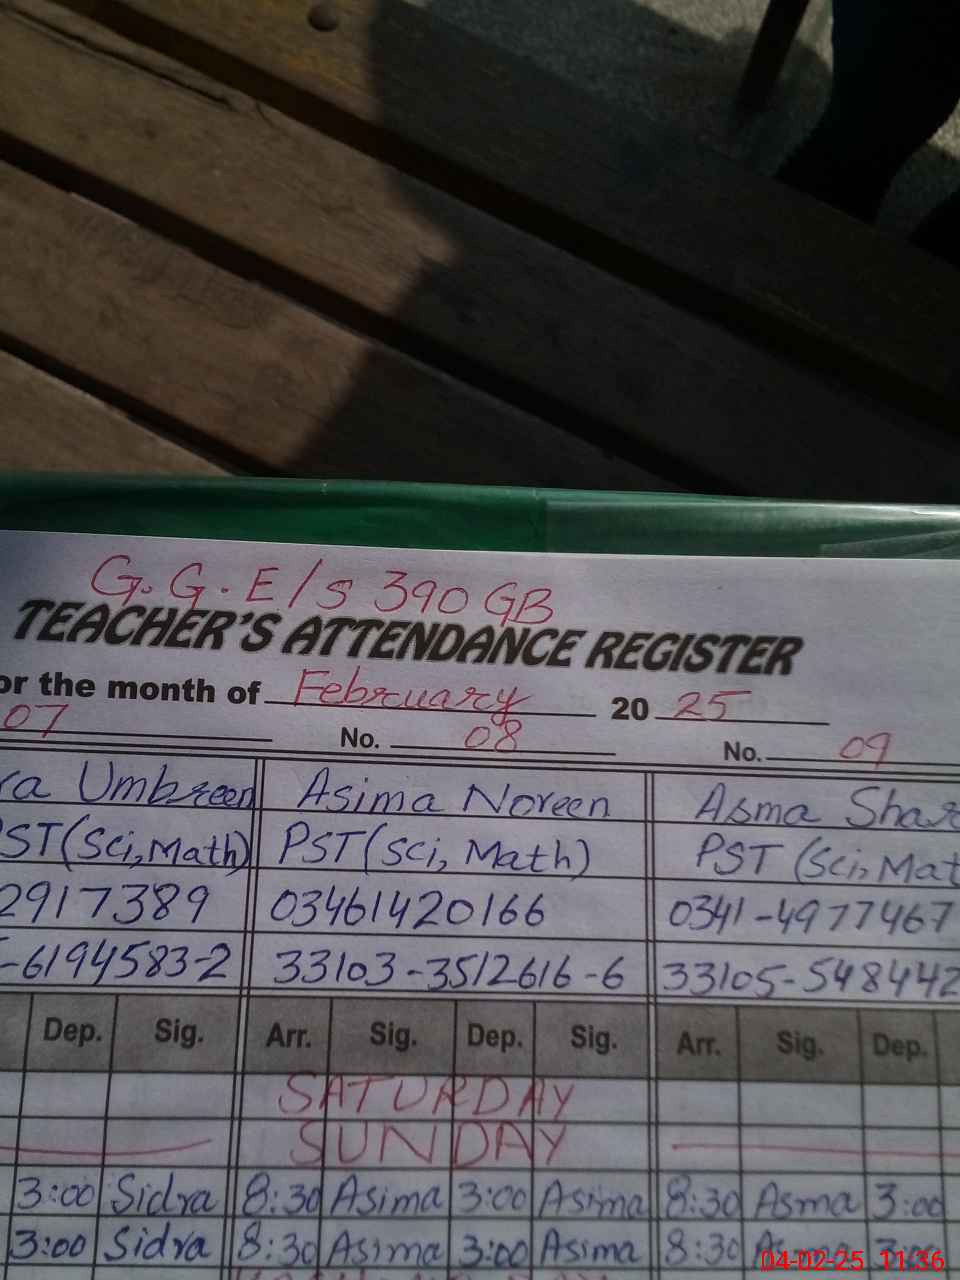 G.G.E/s 390 GB
TEACHER'S ATTENDANCE REGISTER
or the month of February 20 25
07 No. 08 No. 09
ra Umbreen Asima Noreen Asma Shar
PST(Sci,Math) PST(Sci, Math) PST (Sci, Mat
2917389 03461420166 0341-4977467
-6194583-2 33103-3512616-6 33105-548442
Dep. Sig. Arr. Sig. Dep. Sig. Arr. Sig. Dep.
SATURDAY
SUNDAY
3:00 Sidra 8:30 Asima 3:00 Asima 8:30 Asma 3:00
3:00 Sidra 8:30 Asima 3:00 Asima 8:30 Asma 3:00
04-02-25 11:36